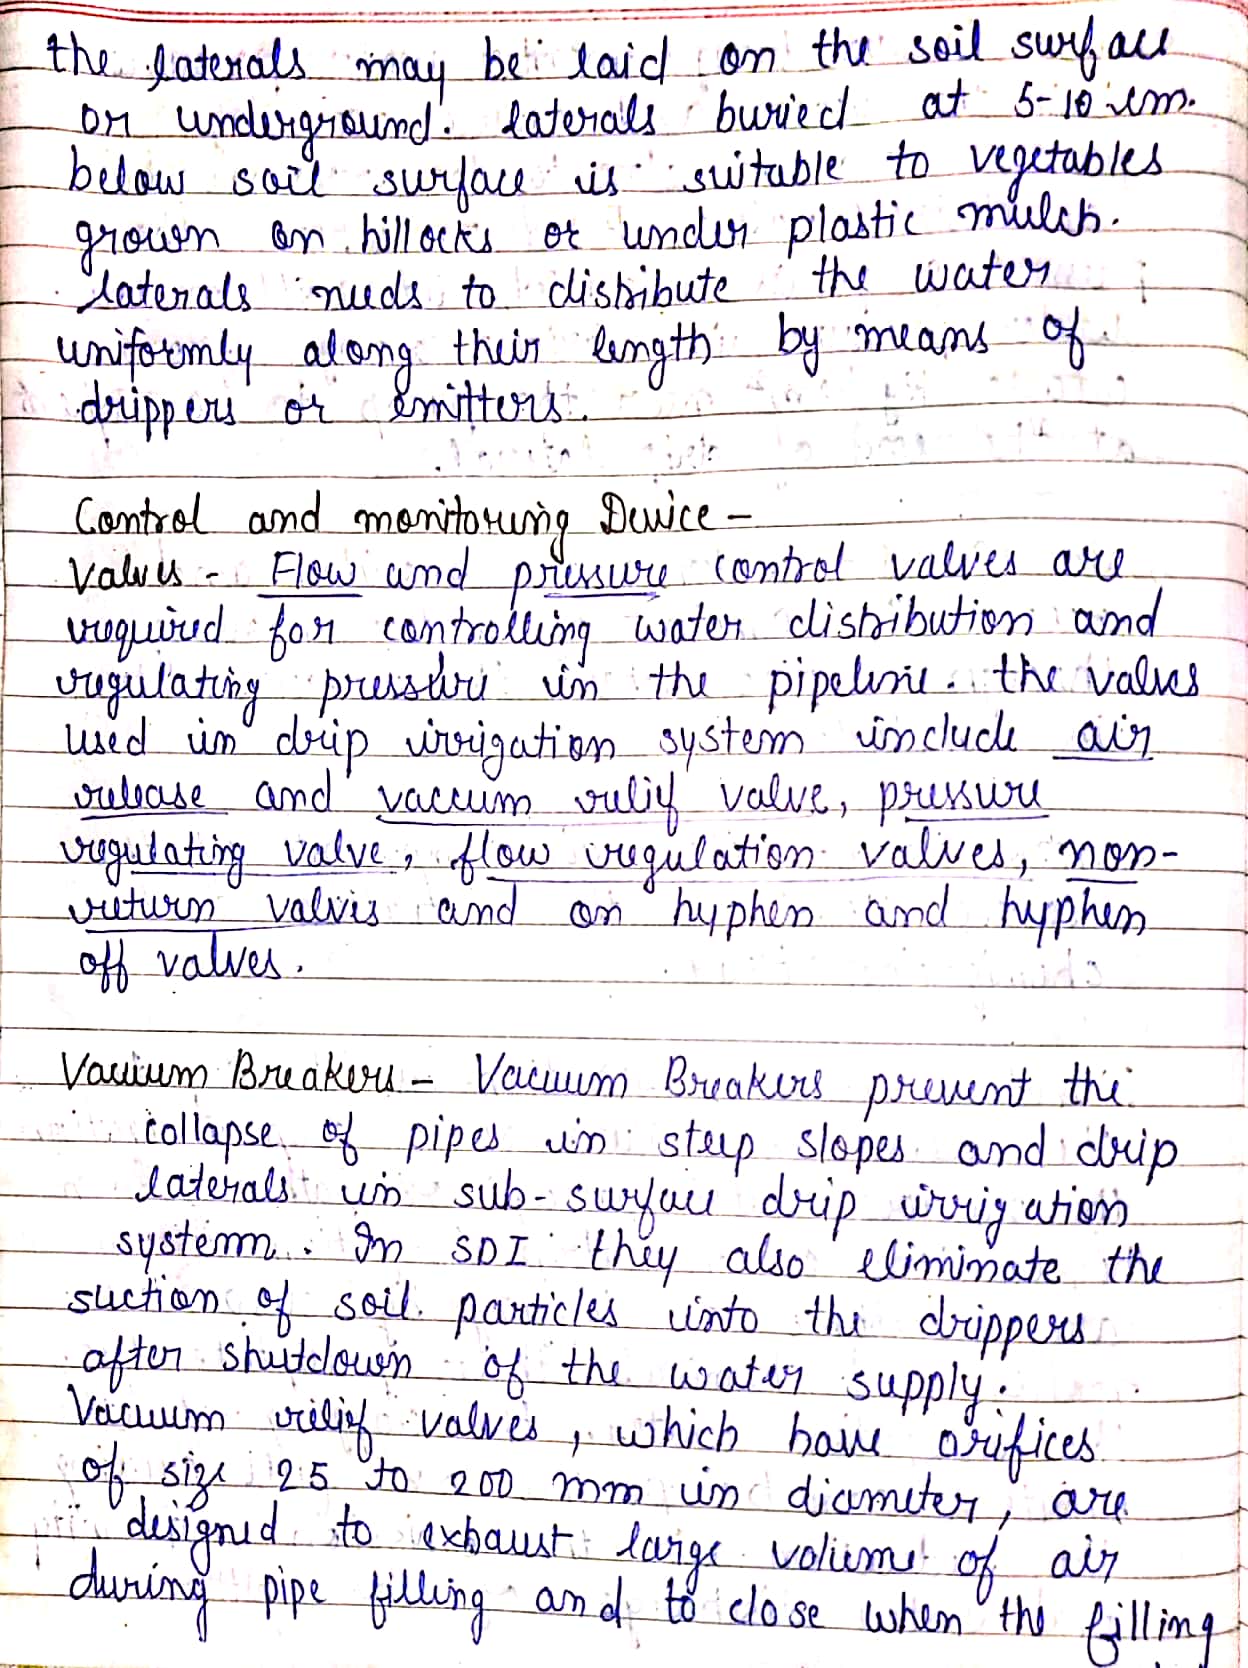 the laterals may be laid on the soil surface
or underground. laterals buried at 5-10 cm.
below soil surface is suitable to vegetables
grown on hillocks or under plastic mulch.
laterals needs to distribute the water
uniformly along their length by means of
drippers or emitters.
Control and monitoring Device -
Valves - Flow and pressure control valves are
required for controlling water distribution and
regulating pressure in the pipeline. the valves
used in drip irrigation system include air
release and vaccum relief valve, pressure
regulating valve, flow regulation valves, non-
return valves and on hyphen and hyphen
off valves.
Vacuum Breakers - Vacuum Breakers prevent the
collapse of pipes in steep slopes and drip
laterals in sub-surface drip irrigation
system. In SDI they also eliminate the
suction of soil particles into the drippers
after shutdown of the water supply.
Vacuum relief valves, which have orifices
of size 25 to 200 mm in diameter, are
designed to exhaust large volume of air
during pipe filling and to close when the filling